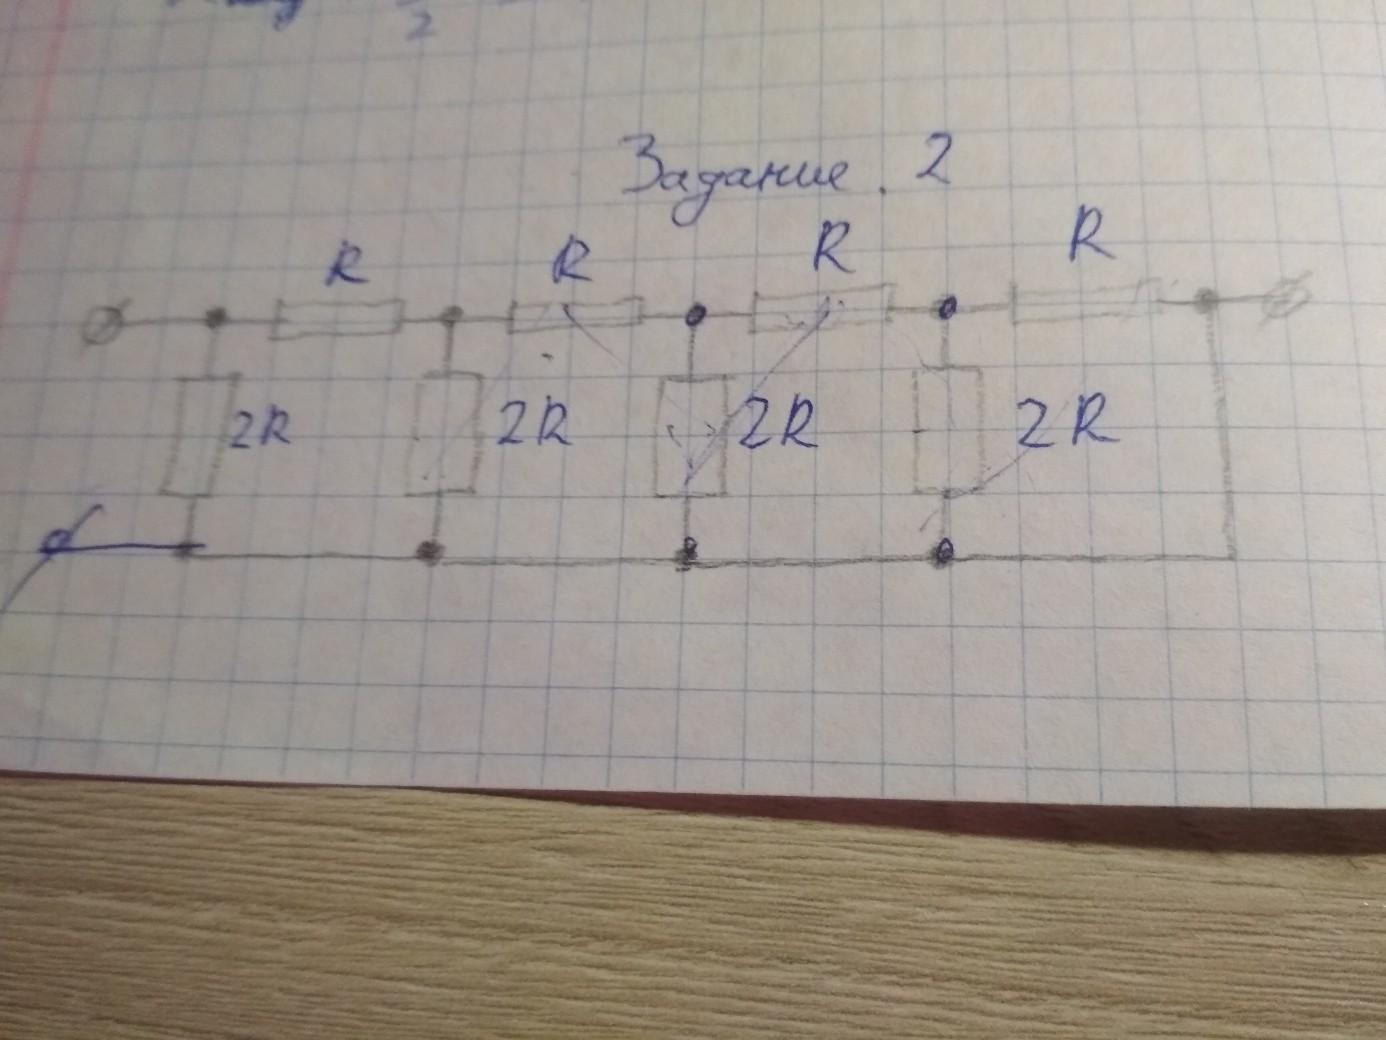 2
Задание. 2
R R R R
2R 2R 2R 2R